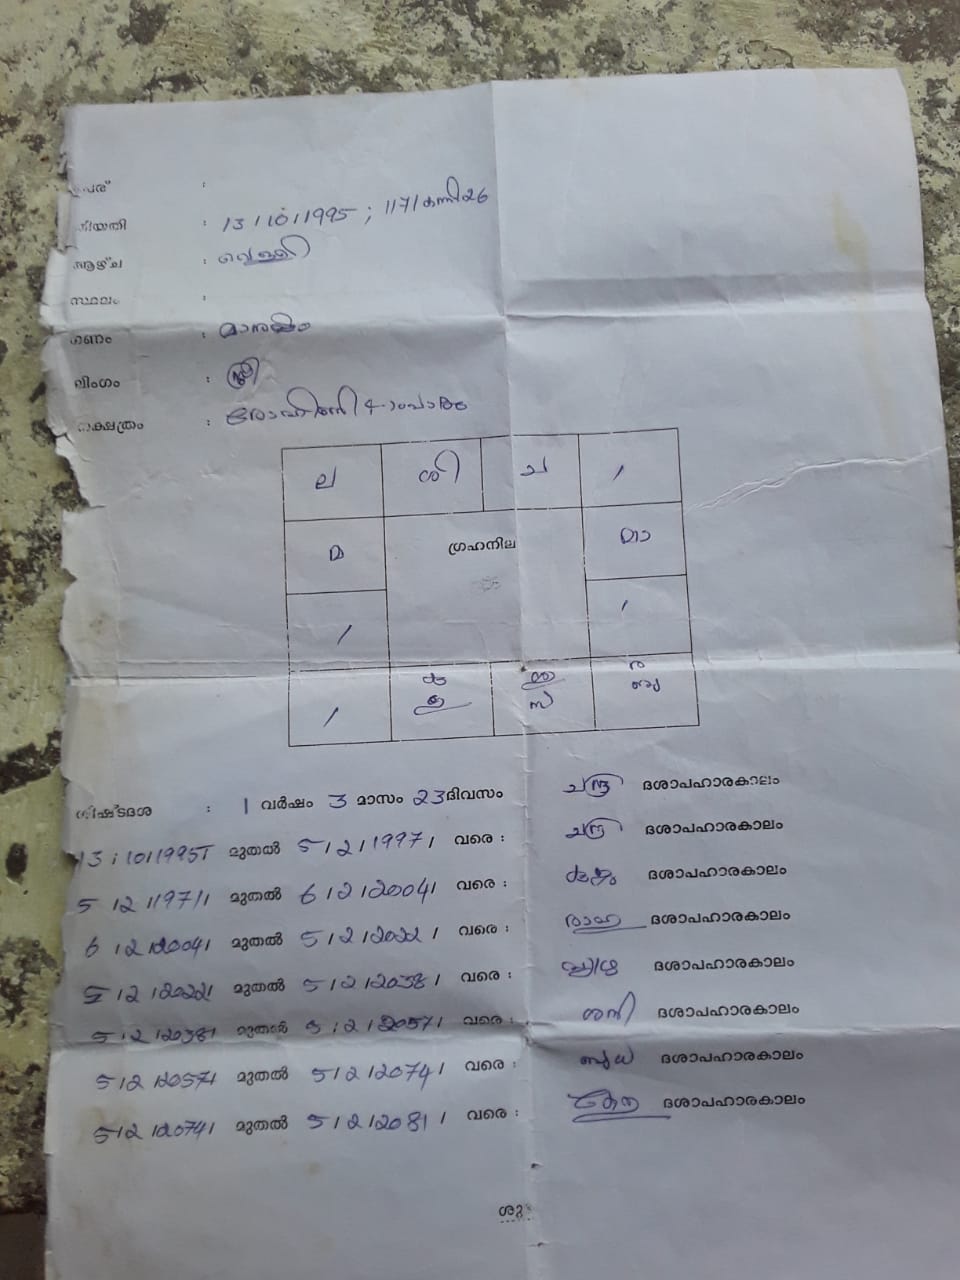 പേര് :
തിയതി : 13/10/1995 ; 1171 കന്നി 26
ആഴ്ച : വെള്ളി
സ്ഥലം :
ഗണം : മാനുഷം
ലിംഗം : സ്ത്രീ
നക്ഷത്രം : രോഹിണി 4-ാംപാദം
ല ശി ച /
മ ഗ്രഹനില മാ
/ /
/ കു ഗു ശു സ ര ബു
ശിഷ്ടദശ : 1 വർഷം 3 മാസം 23 ദിവസം ചന്ദ്ര ദശാപഹാരകാലം
13/10/1995 മുതൽ 5/2/1997/ വരെ : ചന്ദ്ര ദശാപഹാരകാലം
5/2/1997/ മുതൽ 6/2/2004/ വരെ : കുജ ദശാപഹാരകാലം
6/2/2004/ മുതൽ 5/2/2022/ വരെ : രാഹു ദശാപഹാരകാലം
5/2/2022/ മുതൽ 5/2/2038/ വരെ : വ്യാഴ ദശാപഹാരകാലം
5/2/2038/ മുതൽ 5/2/2057/ വരെ : ശനി ദശാപഹാരകാലം
5/2/2057/ മുതൽ 5/2/2074/ വരെ : ബുധ ദശാപഹാരകാലം
5/2/2074/ മുതൽ 5/2/2081/ വരെ : കേതു ദശാപഹാരകാലം